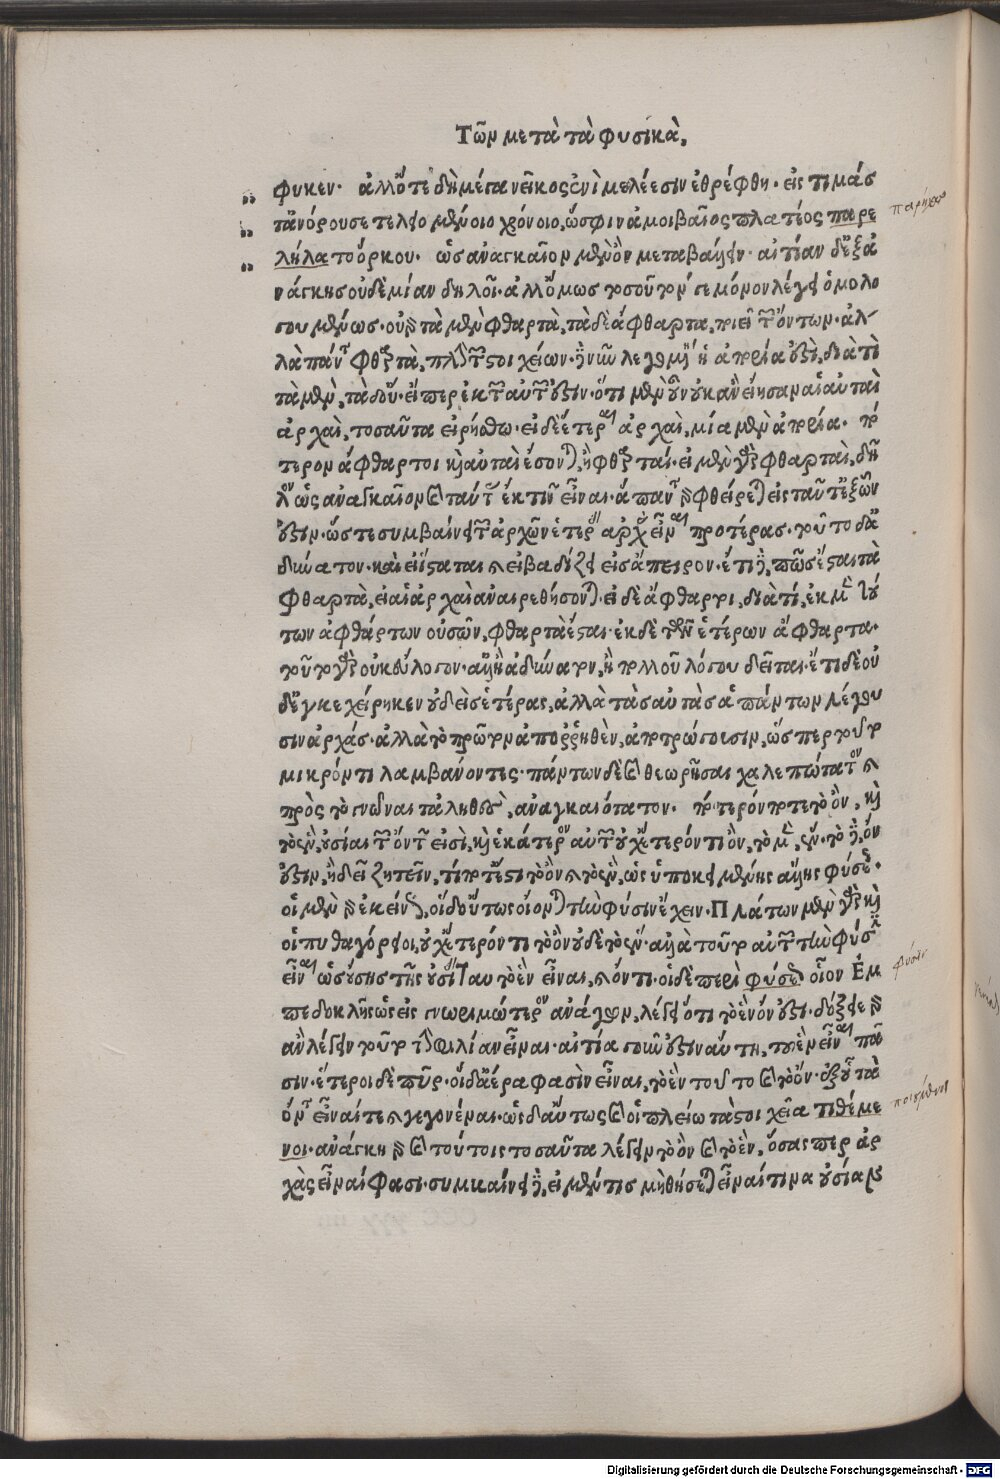 Τῶν μετὰ τὰ φυσικὰ,
φυκεν· ἀλλ' ὅτε δὴ μέγα νεῖκος ἐνὶ μελέεσιν ἐθρέφθη· εἰς τιμάς
τ' ἀνόρουσε τελειομένοιο χρόνοιο, ὥς φιν ἀμοιβαῖος πλατέος παρε
λήλατο ὅρκου· ὡς ἀναγκαῖον μὲν ὂν μεταβάλλειν· αἰτίαν δ' ἐξ ἀ
νάγκης οὐδεμίαν δηλοῖ· ἀλλ' ὅμως τοσοῦτόν γε μόνον λέγει ὁμολο
γουμένως· οὐ γὰρ τὰ μὲν φθαρτὰ, τὰ δὲ ἄφθαρτα, ποιεῖ τῶν ὄντων· ἀλ
λὰ πάντα φθαρτὰ, πλὴν τῶν στοιχείων· ἡ δὲ νῦν λεγομένη ἡ ἀπορία ἐστὶ, διὰ τί
τὰ μὲν, τὰ δ' οὔ· εἴπερ ἐκ τῶν αὐτῶν ἐστιν· ὅτι μὲν οὖν οὐκ ἂν εἴησαν αἱ αὐταὶ
ἀρχαὶ, τοσαῦτα εἰρήσθω· εἰ δὲ ἕτεραι ἀρχαὶ, μία μὲν ἀπορία· πό
τερον ἄφθαρτοι καὶ αὐταὶ ἔσονται, ἢ φθαρταί· εἰ μὲν γὰρ φθαρταὶ, δῆ
λον ὡς ἀναγκαῖον καὶ ταύτας ἐκ τινῶν εἶναι· ἅπαντα γὰρ φθείρεται εἰς ταῦτ' ἐξ ὧν
ἐστιν· ὥστε συμβαίνει τῶν ἀρχῶν ἑτέρας ἀρχὰς εἶναι προτέρας· τοῦτο δ' ἀ
δύνατον· καὶ εἰ ἵσταται καὶ εἰ βαδίζει εἰς ἄπειρον· ἔτι δὲ, πῶς ἔσται τὰ
φθαρτὰ, εἰ αἱ ἀρχαὶ ἀναιρεθήσονται· εἰ δὲ ἄφθαρτοι, διὰ τί, ἐκ μὲν τού
των ἀφθάρτων οὐσῶν, φθαρτὰ ἔσται· ἐκ δὲ τῶν ἑτέρων ἄφθαρτα·
τοῦτο γὰρ οὐκ εὔλογον· ἀλλ' ἢ ἀδύνατον, ἢ πολλοῦ λόγου δεῖται· ἔτι δὲ οὐ
δ' ἐγκεχείρηκεν οὐδεὶς ἑτέρας, ἀλλὰ τὰς αὐτὰς ἁπάντων λέγου
σιν ἀρχάς· ἀλλὰ τὸ πρῶτον ἀπορρηθὲν, ἀποτρώγουσιν, ὥσπερ τοῦτο
μικρόν τι λαμβάνοντες· πάντων δὲ καὶ θεωρῆσαι χαλεπώτατον καὶ
πρὸς τὸ γνῶναι τἀληθὲς, ἀναγκαιότατον· πότερόν ποτε τὸ ὂν, καὶ
τὸ ἓν, οὐσίαι τῶν ὄντων εἰσὶ, καὶ ἑκάτερον αὐτῶν οὐχ ἕτερόν τι ὂν, τὸ μὲν, ἕν· τὸ δὲ, ὄν
ἐστιν, ἢ δεῖ ζητεῖν, τί ποτ' ἐστὶ τὸ ὂν καὶ τὸ ἓν, ὡς ὑποκειμένης ἄλλης φύσεως·
οἱ μὲν γὰρ ἐκείνως, οἱ δ' οὕτως οἴονται τὴν φύσιν ἔχειν· Πλάτων μὲν γὰρ καὶ
οἱ πυθαγόρειοι, οὐχ ἕτερόν τι τὸ ὂν οὐδὲ τὸ ἕν· ἀλλὰ τοῦτο αὐτῶν τὴν φύσιν
εἶναι ὡς οὔσης τῆς οὐσίας ταυτὸ ἓν εἶναι, καὶ ὄντι· οἱ δὲ περὶ φύσεως οἷον Ἐμ
πεδοκλῆς ὡς εἰς γνωριμώτερον ἀνάγων, λέγει ὅτι τὸ ἓν ὄν ἐστι· δόξειε γὰρ
ἂν λέγειν τοῦτο τὴν φιλίαν εἶναι· αἰτία γοῦν ἐστιν αὕτη, τοῦ ἓν εἶναι πᾶ
σιν· ἕτεροι δὲ πῦρ· οἱ δ' ἀέρα φασὶν εἶναι, τὸ ἓν τοῦτο καὶ τὸ ὄν· ἐξ οὗ τὰ
ὄντα εἶναί τε καὶ γεγονέναι· ὡς δ' αὕτως καὶ οἱ πλείω τὰ στοιχεῖα τιθέμε
νοι· ἀνάγκη γὰρ καὶ τούτοις τοσαῦτα λέγειν τὸ ὂν καὶ τὸ ἓν, ὅσας περ ἀρ
χὰς εἶναί φασι· συμβαίνει δὲ, εἰ μέν τις μὴ θήσεται εἶναί τινα οὐσίαν
Digitalisierung gefördert durch die Deutsche Forschungsgemeinschaft - DFG